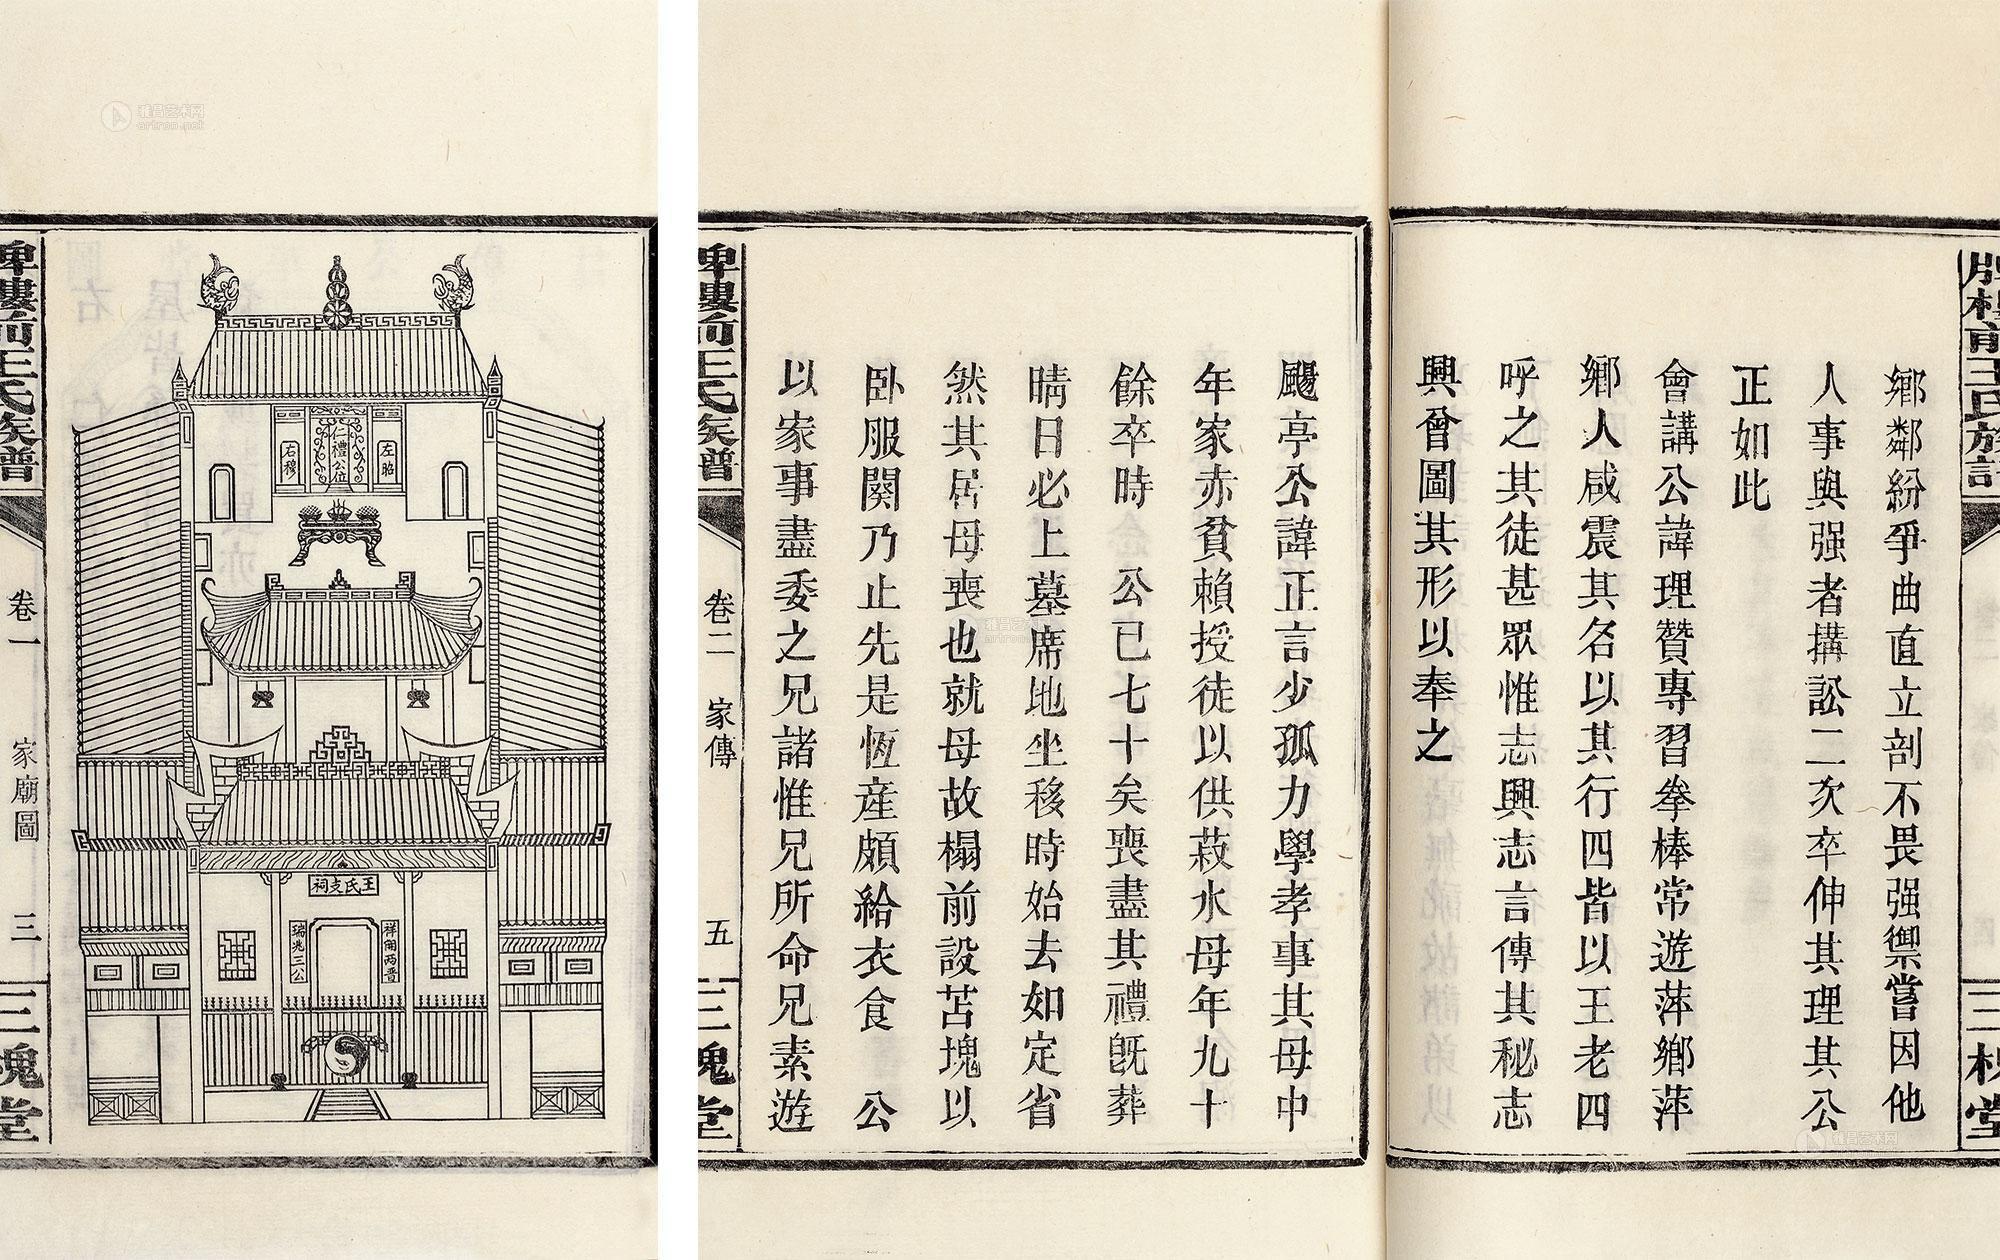 鄉鄰紛爭曲直立剖不畏强禦嘗因他
人事與强者搆訟二次卒伸其理其公
正如此
會講公諱理贊專習拳棒常遊萍鄉萍
鄉人咸震其名以其行四皆以王老四
呼之其徒甚眾惟志興志言傳其秘志
興曾圖其形以奉之
颺亭公諱正言少孤力學孝事其母中
年家赤貧賴授徒以供菽水母年九十
餘卒時 公已七十矣喪盡其禮旣葬
晴日必上墓席地坐移時始去如定省
然其居母喪也就母故榻前設苫塊以
卧服闋乃止先是恆産頗給衣食 公
以家事盡委之兄諸惟兄所命兄素遊
牌樓前王氏族譜
三槐堂
牌樓前王氏族譜
卷二
家傳
五
三槐堂
仁禮公位
左昭
右穆
王氏支祠
祥開兩晋
瑞兆三公
牌樓前王氏族譜
卷一
家廟圖
三
三槐堂
雅昌艺术网
artron.net